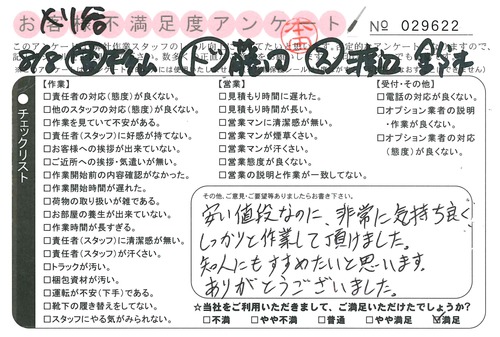 お客様不満足度アンケート
No 029622
本日
チェックリスト
【作業】
□責任者の対応(態度)が良くない。
□他のスタッフの対応(態度)が良くない。
□作業を見ていて不安がある。
□責任者(スタッフ)に好感が持てない。
□お客様への挨拶が出来ていない。
□ご近所への挨拶・気遣いが無い。
□作業開始前の内容確認がなかった。
□作業開始時間が遅れた。
□荷物の取り扱いが雑である。
□お部屋の養生が出来ていない。
□作業時間が長すぎる。
□責任者(スタッフ)に清潔感が無い。
□責任者(スタッフ)が汗くさい。
□トラックが汚い。
□梱包資材が汚い。
□運転が不安(下手)である。
□靴下の履き替えをしてない。
□スタッフにやる気がみられない。
【営業】
□見積もり時間に遅れた。
□見積もり時間が長い。
□営業マンに清潔感が無い。
□営業マンが煙草くさい。
□営業マンが汗くさい。
□営業態度が良くない。
□営業の説明と作業が一致してない。
【受付・その他】
□電話の対応が良くない。
□オプション業者の説明
・作業が良くない。
□オプション業者の対応
(態度)が良くない。
その他、ご意見・ご要望等ありましたらお書き下さい。
安い値段なのに、非常に気持ち良く
しっかりと作業して頂けました。
知人にもすすめたいと思います。
ありがとうございました。
☆当社をご利用いただきまして、ご満足いただけたでしょうか?
□不満 □やや不満 □普通 □やや満足 ☑満足